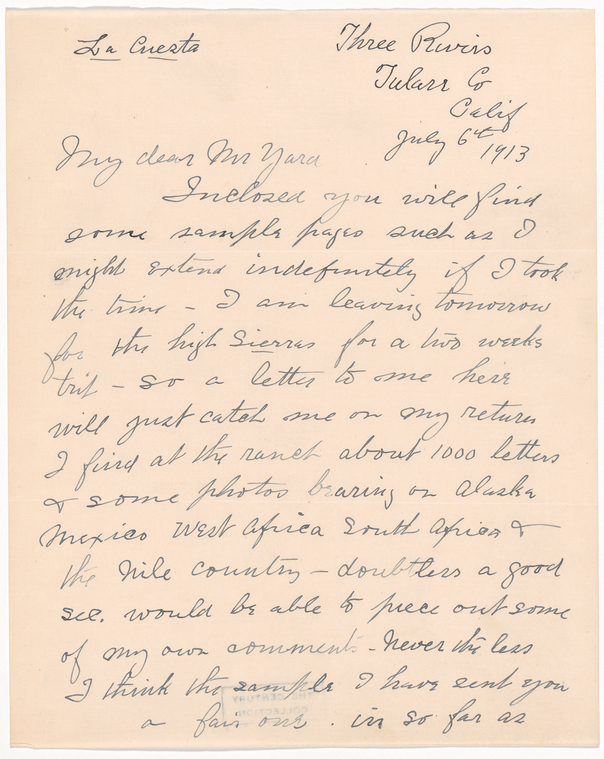 La Cuesta
Three Rivers
Tulare Co
Calif
July 6th 1913
My dear Mr Yard
Inclosed you will find
some sample pages such as I
might extend indefinitely if I took
the time – I am leaving tomorrow
for the high Sierras for a two weeks
trip – so a letter to me here
will just catch me on my return
I find at the ranch about 1000 letters
& some photos bearing on Alaska
Mexico West Africa South Africa &
the Nile country – doubtless a good
sec. would be able to piece out some
of my own comments – Never the less
I think the sample I have sent you
a fair one . in so far as
THE CENTURY
COLLECTION